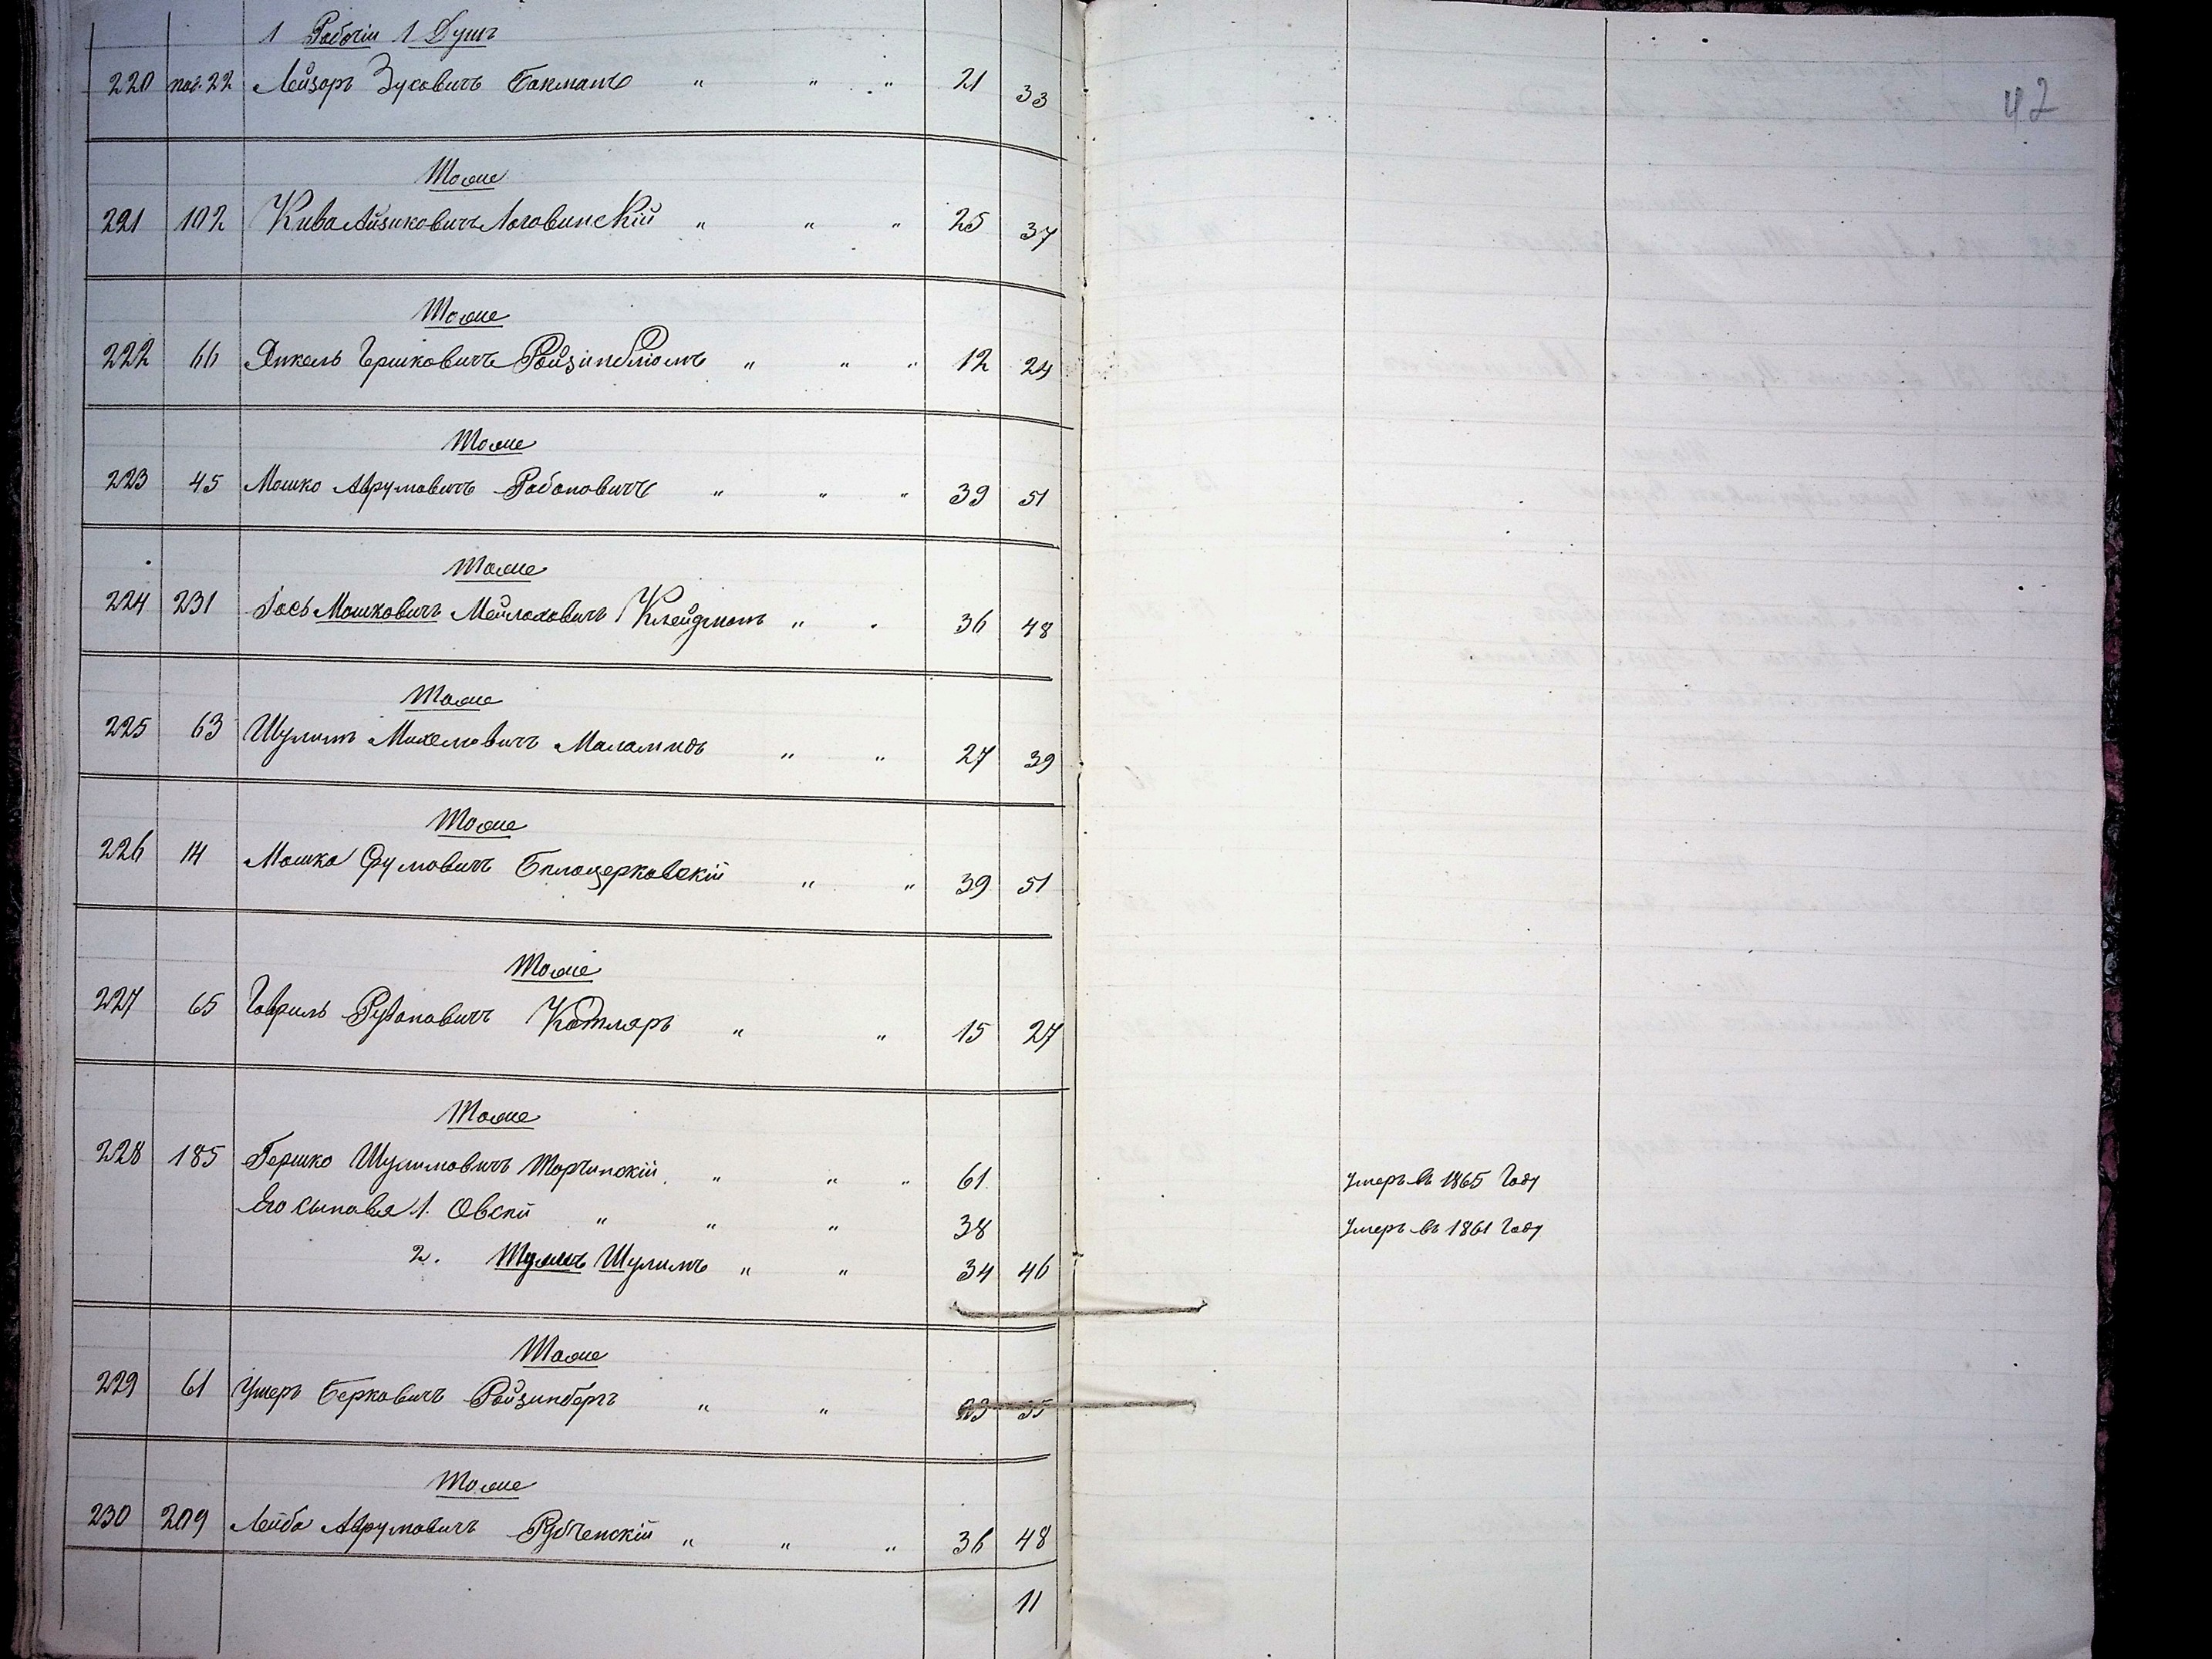 42
1 Рабочій 1 Душъ
220 пос. 22 Лейзоръ Зусовичъ Бакманъ " " " 21 33
Тоже
221 102 Кива Айзиковичъ Логовинскій " " " 25 37
Тоже
222 66 Янкель Гершковичъ Ройзинблютъ " " " 12 24
Тоже
223 45 Мошко Аврумовичъ Рабоновичъ " " " 39 51
Тоже
224 231 Іось Мошковичъ Мейлоховичъ Клейдманъ " " 36 48
Тоже
225 63 Шулимъ Михелювичъ Маламидъ " " 27 39
Тоже
226 14 Мошко Фумовичъ Билоцерковскій " " 39 51
Тоже
227 65 Гавриль Рувановичъ Котляръ " " 15 27
Тоже
228 185 Гершко Шулимовичъ Торчинскій " " " 61 Умеръ въ 1865 Году
Его сыновья 1. Овсій " " " 38 Умеръ въ 1861 Году
2. Шулимъ " " 34 46
Тоже
229 61 Ушеръ Берковичъ Ройзинбергъ " " 23 35
Тоже
230 209 Лейба Аврумовичъ Рубченскій " " " 36 48
11